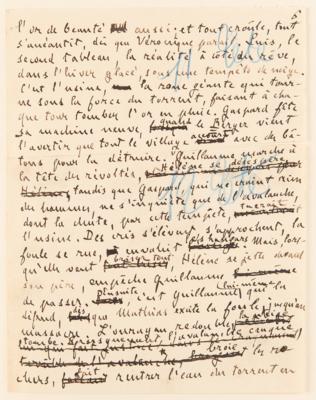 5
l'or de beauté aussi: et tout croule, tout
s'anéantit, dès que Véronique paraît. Puis, le
second tableau, la réalité à côté du rêve,
dans l'hiver glacé, sous une tempête de neige.
C'est l'usine, la roue géante qui tour-
ne sous la force du torrent, faisant à cha-
que tour tomber l'or en pluie. Gaspard fête
sa machine neuve, quand le Berger vient
l'avertir que tout le village accourt avec de bâ-
tons pour la détruire. Guillaume marche à
la tête des révoltés, Hélène se désespère
tandis que Gaspard, qui ne craint rien
des hommes, ne s'inquiète que de l'avalanche,
dont la chute, par cette tempête,
l'usine. Des cris s'élèvent, s'approchent, la
foule se rue, envahit les hangars. Mais, lors-
qu'elle veut briser tout, Hélène se jette devant
son père, empêche Guillaume
de passer. Ensuite, c'est Guillaume qui lui-même la
défend, dès que Mathias excite la foule, jusqu'au
massacre. L'ouragan redouble,
brusquement, l'avalanche
broie les ro-
chers, fait rentrer l'eau du torrent en